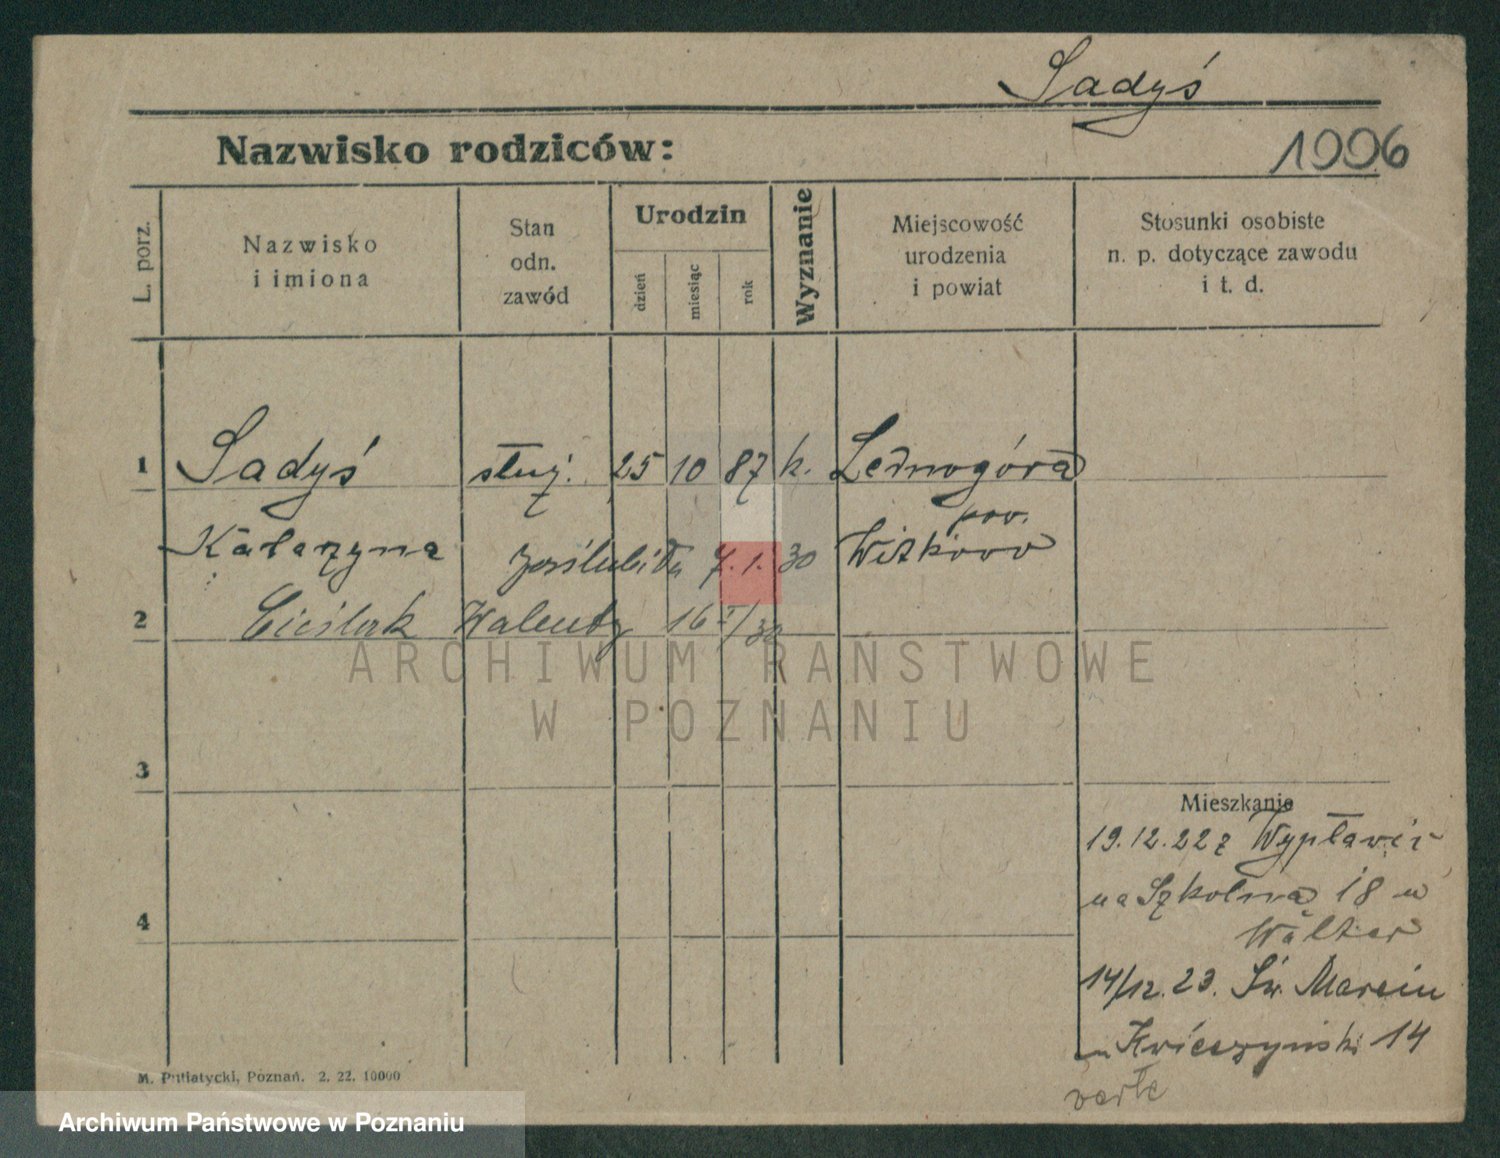 Sadyś
Nazwisko rodziców:
1006
L. porz.
Nazwisko
i imiona
Stan
odn.
zawód
Urodzin
dzień
miesiąc
rok
Wyznanie
Miejscowość
urodzenia
i powiat
Stosunki osobiste
n. p. dotyczące zawodu
i t. d.
1 Sadyś służ. 25 10 87 k. Lednogóra
pow.
Katarzyna zaślubiła 7.1.30 Witkowo
2 Cieślak Walenty 16 I/30
ARCHIWUM PAŃSTWOWE
W POZNANIU
3
Mieszkanie
19.12.22 z
na Szkolna 18 u
4
Walter
14/12.23. Św. Marcin
u Kwieczyński 14
verte
M. Putiatycki, Poznań. 2. 22. 10000
Archiwum Państwowe w Poznaniu